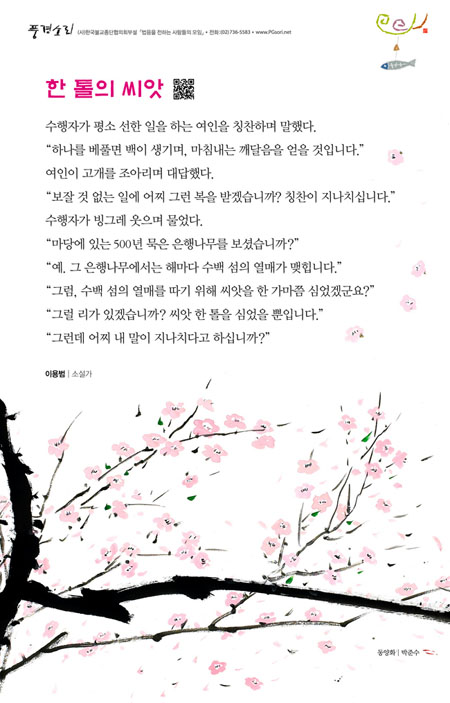 풍경소리 (사)한국불교종단협의회부설 「법음을 전하는 사람들의 모임」 • 전화:(02)736-5583 • www.PGsori.net
한 톨의 씨앗
수행자가 평소 선한 일을 하는 여인을 칭찬하며 말했다.
“하나를 베풀면 백이 생기며, 마침내는 깨달음을 얻을 것입니다.”
여인이 고개를 조아리며 대답했다.
“보잘 것 없는 일에 어찌 그런 복을 받겠습니까? 칭찬이 지나치십니다.”
수행자가 빙그레 웃으며 물었다.
“마당에 있는 500년 묵은 은행나무를 보셨습니까?”
“예. 그 은행나무에서는 해마다 수백 섬의 열매가 맺힙니다.”
“그럼, 수백 섬의 열매를 따기 위해 씨앗을 한 가마쯤 심었겠군요?”
“그럴 리가 있겠습니까? 씨앗 한 톨을 심었을 뿐입니다.”
“그런데 어찌 내 말이 지나치다고 하십니까?”
이용범 | 소설가
동양화 | 박준수